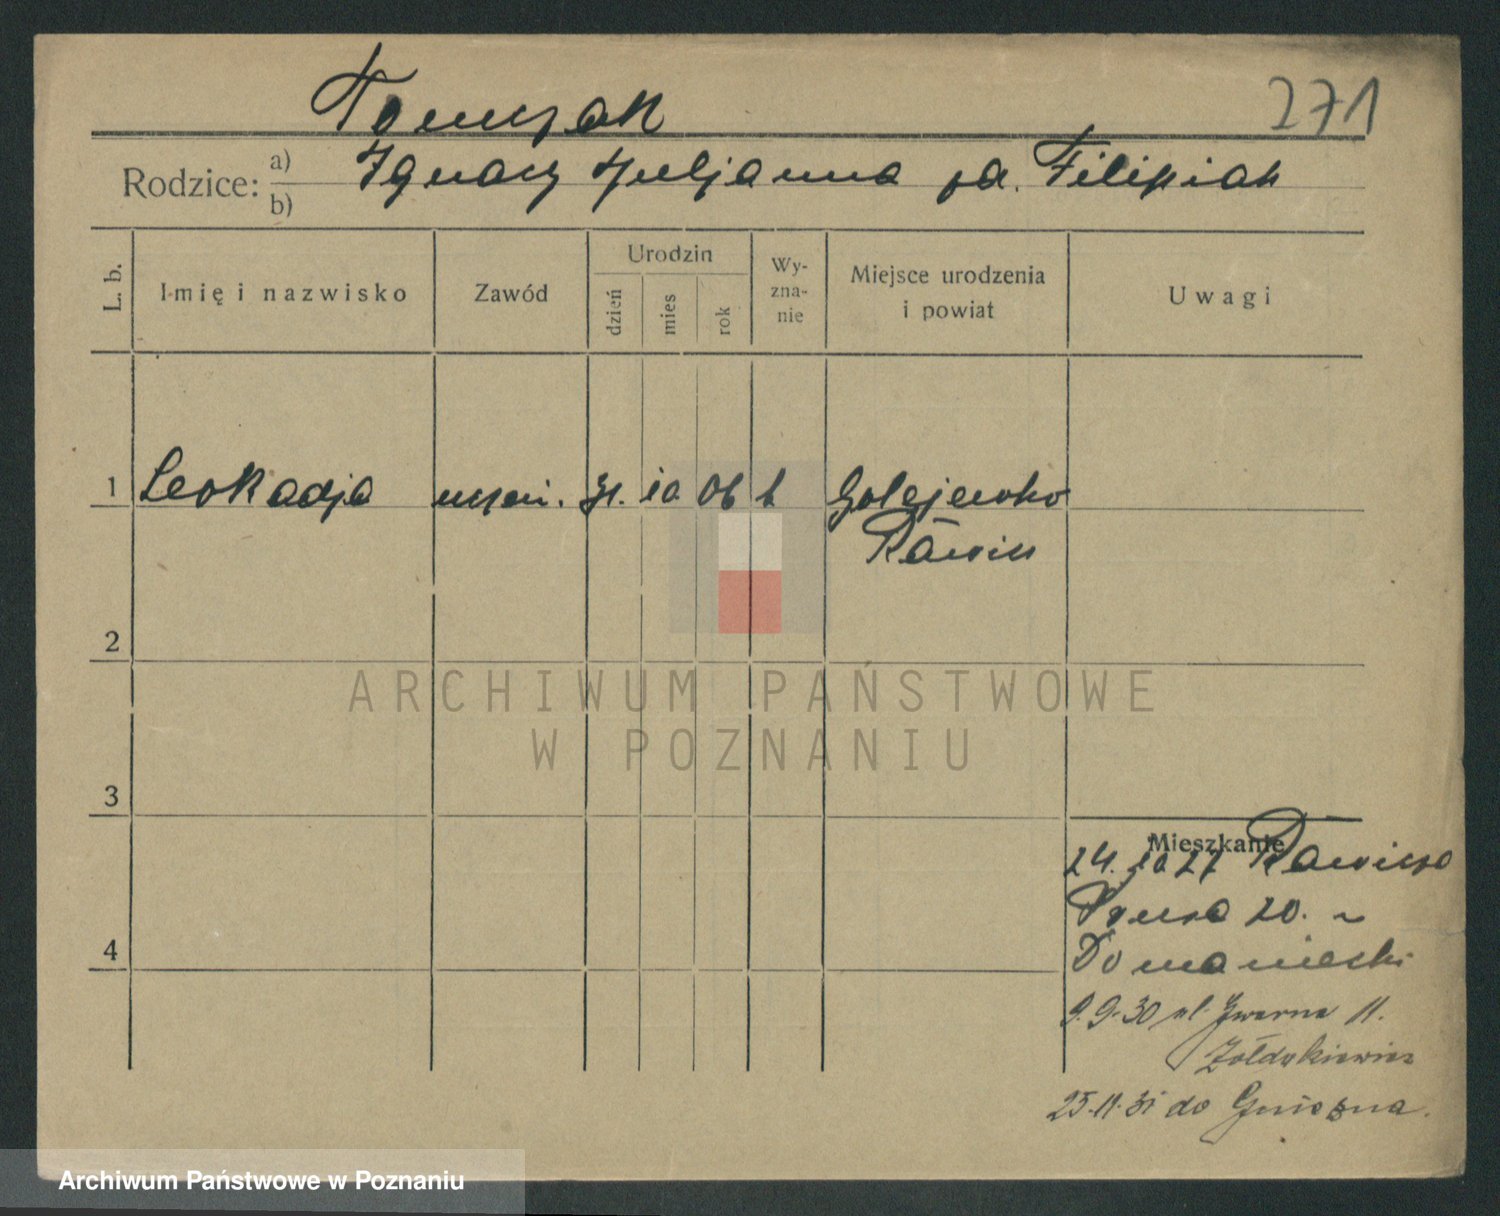 Tomczak
271
Rodzice: a) b) Ignacy Juljanna za. Filipiak
L. b. Imię i nazwisko Zawód Urodzin dzień mies rok Wyznanie Miejsce urodzenia i powiat Uwagi
1 Leokadja uczen. 31. 10 06 k Golejewko
Rawicz
2
ARCHIWUM PAŃSTWOWE
W POZNANIU
3
Mieszkanie
24. 10 27 Rawicza
20.
4
Domaniecki
9.9.30 ul. Gwarna 11.
Żołdykiewicz
25.11.31 do Gniezna.
Archiwum Państwowe w Poznaniu